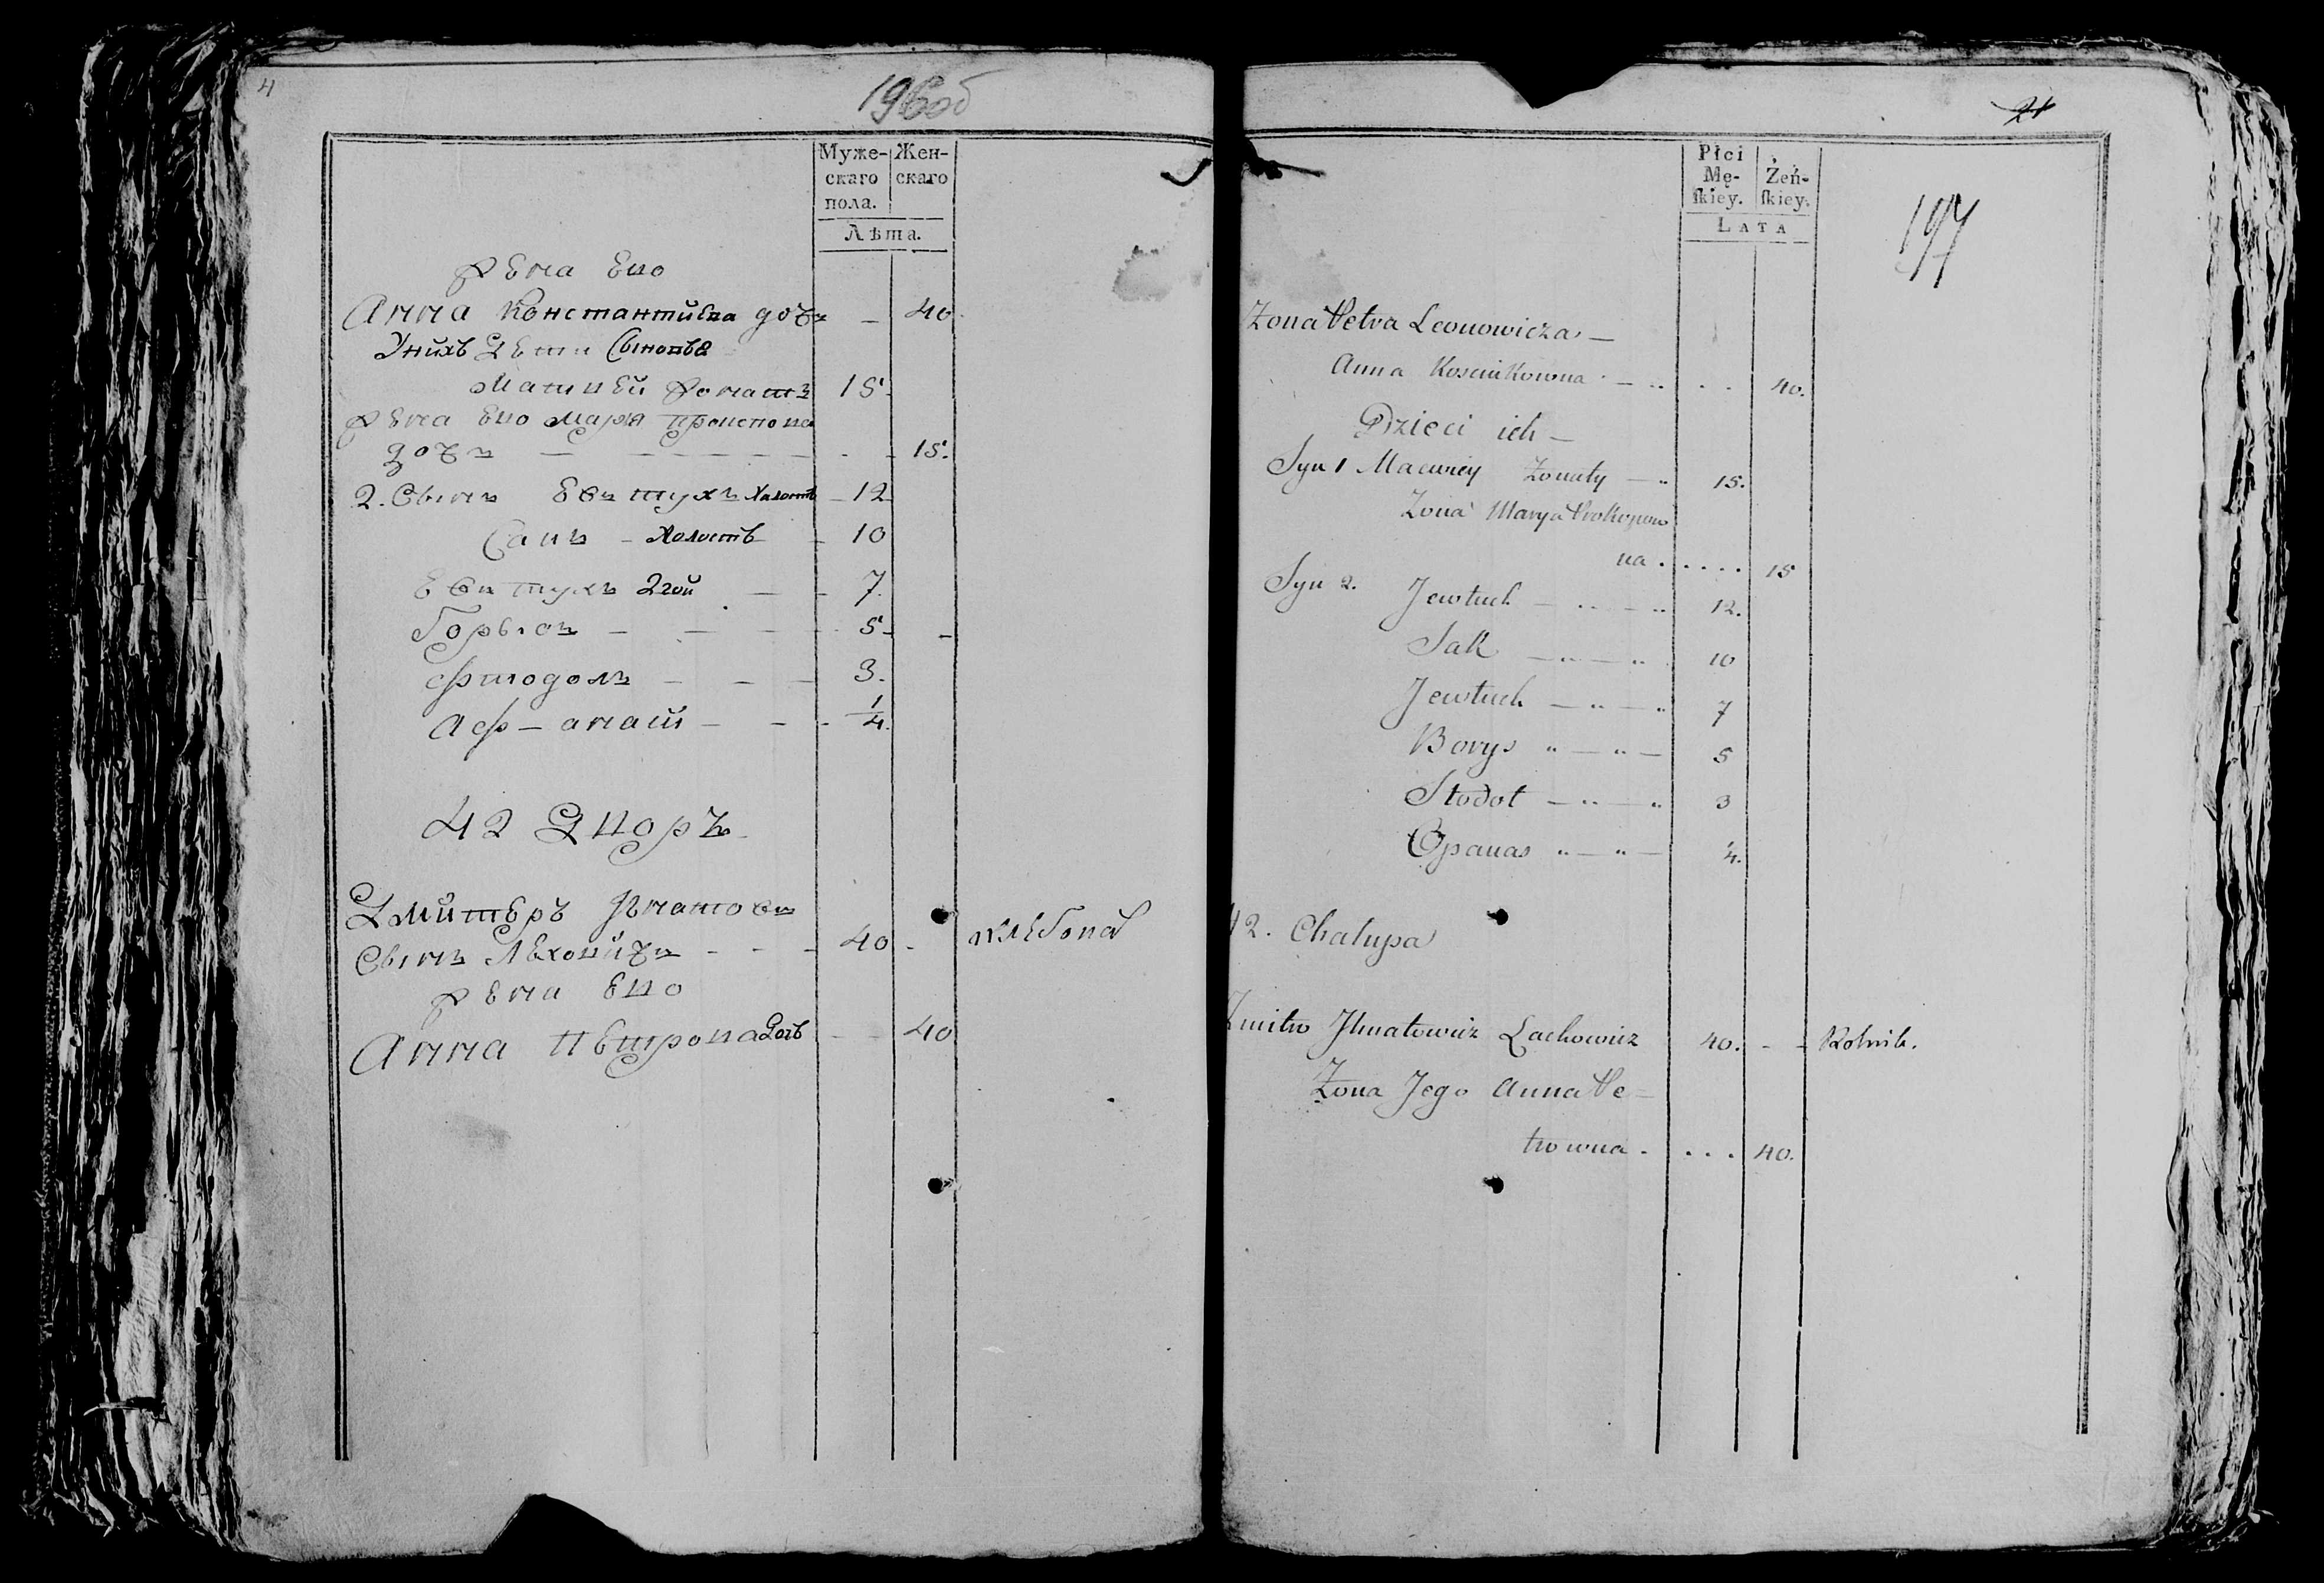 4
196об
Муже-
скаго
пола.
Жен-
скаго
Лѣта.
жена Его
Анна Константиева дочъ — 40
Унихъ Дети Сыновья
Матвей женатъ 15.
жена Его Марія прокопова
дочъ — — — — — — 15.
2. Сынъ Евтухъ Холостъ — 12
Сакъ — Холостъ — 10
Евтухъ 2гой — — 7.
Борысъ — — — 5. —
Фтодолъ — — — 3.
Афанасій — — — 1/4.
42 Дворъ
Дмитеръ Игнатовъ
Сынъ Леховичъ — — — 40 — хлебопа
жена Его
Анна Петрова Дочъ — — 40
21
Płci
Mę-
ſkiey.
Żeń-
ſkiey.
LATA
197
Zona Petra Leonowicza —
Anna Kosciukowna — .. . . 40.
Dzieci ich —
Syn 1 Maciwiey Zonaty — .. 15.
Zona Marya Prokopow
na . . . . . 15
Syn 2. Jewtuch — .. — .. 12.
Sak — .. — .. 10
Jewtuch — .. — .. 7
Borys .. — .. — 5
Stodot — .. — .. 3
Opanas .. — .. — 1/4.
42. Chalupa
Zmitro Ihnatowicz Lachowicz 40. - - Rolnik.
Zona Jego Anna Pe-
trowna . . . . 40.